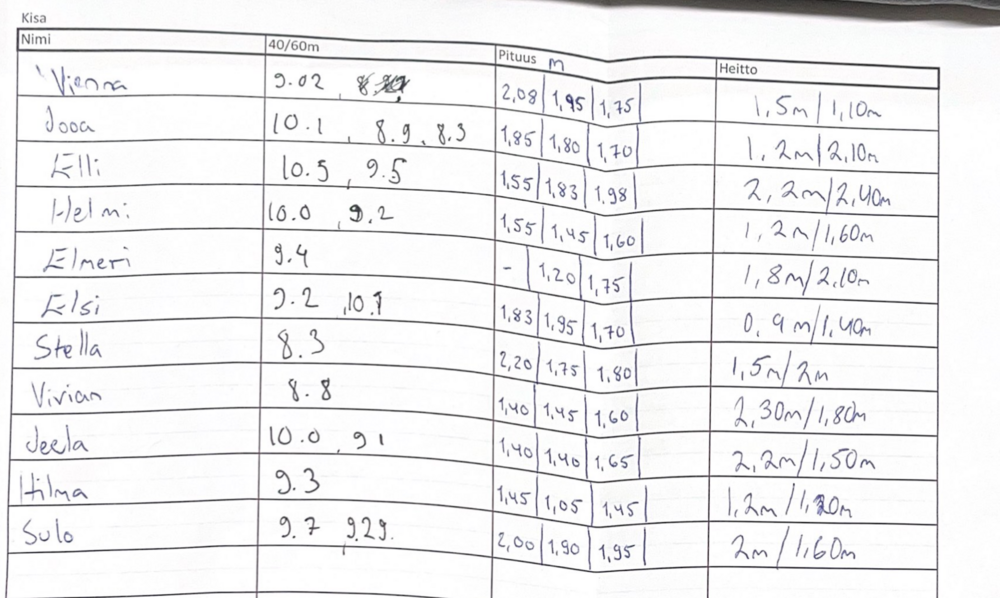 Kisa
Nimi 40/60m Pituus m Heitto
Vienna 9.02, 2,08 | 1,95 | 1,75 | 1,5m/1,10m
Jooa 10.1, 8.9, 8.3 1,85 | 1,80 | 1,70 | 1,2m/2,10m
Elli 10.5, 9.5 1,55 | 1,83 | 1,98 | 2,2m/2,40m
Helmi 10.0, 9.2 1,55 | 1,45 | 1,60 | 1,2m/1,60m
Elmeri 9.4 - | 1,20 | 1,75 | 1,8m/2,10m
Elsi 9.2, 10.1 1,83 | 1,95 | 1,70 | 0,9m/1,40m
Stella 8.3 2,20 | 1,75 | 1,80 | 1,5m/2m
Vivian 8.8 1,40 | 1,45 | 1,60 | 2,30m/1,80m
Jeela 10.0, 9 1 1,40 | 1,40 | 1,65 | 2,2m/1,50m
Hilma 9.3 1,45 | 1,05 | 1,45 | 1,2m/
Sulo 9.7, 9.29. 2,00 | 1,90 | 1,95 | 2m/1,60m